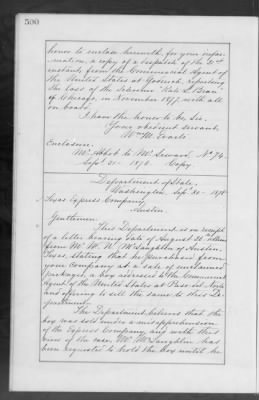 500
honor to enclose herewith, for your infor-
mation, a copy of a despatch of the 21st
instant, from the Commercial Agent of
the United States at Goderich, reporting
the loss of the Schooner "Kate L. Bruce"
of Oswego, in November 1877, with all
on board.
I have the honor to be, Sir,
Your obedient servant,
Wm. M. Evarts
Enclosure.
Mr. Abbot to Mr. Seward, No 74.
Sept. 21 - 1878. Copy
Department of State,
Washington, Sept 30 - 1878
Texas Express Company,
Austin
Gentlemen:
This Department is in receipt
of a letter bearing date of August 30 ultimo
from Mr. W. N. McLaughlin of Austin,
Texas, stating that he purchased from
your Company at a sale of unclaimed
packages, a box addressed to the Commercial
Agent of the United States at Paso del Norte
and offering to sell the same to this De-
partment.
The Department believes that the
box was sold under a misapprehension
of the Express Company, and with this
view of the case, Mr. McLaughlin has
been requested to hold the box until he